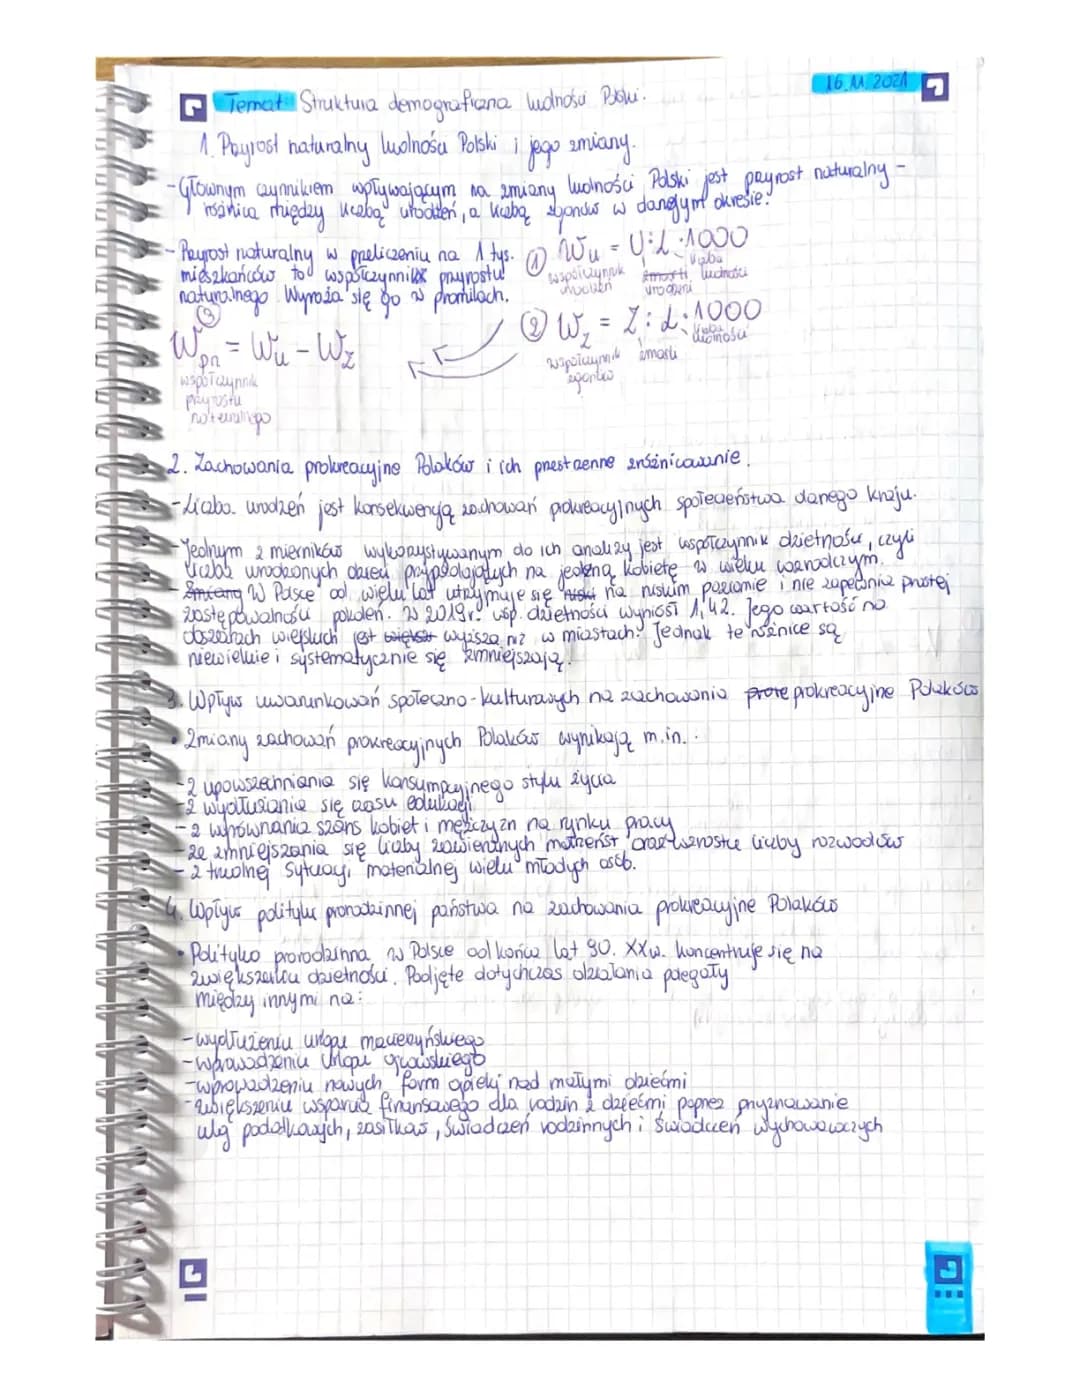 16.11.2021
Temat: Struktura demograficzna ludności Polski.
1. Przyrost naturalny ludności Polski i jego zmiany.
- Głównym czynnikiem wpływającym na zmiany ludności Polski jest przyrost naturalny -
różnica między liczbą urodzeń, a liczbą zgonów w danym okresie.
- Przyrost naturalny w przeliczeniu na 1 tys.
mieszkańców to współczynnik przyrostu
naturalnego. Wyraża się go w promilach.
① Wu = U:L·1000
współczynnik urodzeń
urodzeni
liczba ludności
② Wz = Z:L·1000
współczynnik zgonów
zmarli
liczba ludności
③
Wpn = Wu - Wz
współczynnik
przyrostu
naturalnego
2. Zachowania prokreacyjne Polaków i ich przestrzenne zróżnicowanie.
- Liczba urodzeń jest konsekwencją zachowań prokreacyjnych społeczeństwa danego kraju.
- Jednym z mierników wykorzystywanym do ich analizy jest współczynnik dzietności, czyli
liczba urodzonych dzieci przypadających na jedną kobietę w wieku rozrodczym.
- W Polsce od wielu lat utrzymuje się na niskim poziomie i nie zapewnia prostej
zastępowalności pokoleń. W 2019r. wsp. dzietności wyniósł 1,42. Jego wartość na
obszarach wiejskich jest wyższa niż w miastach. Jednak te różnice są
niewielkie i systematycznie się zmniejszają.
3. Wpływ uwarunkowań społeczno-kulturowych na zachowania prokreacyjne Polaków
• Zmiany zachowań prokreacyjnych Polaków wynikają m.in.:
- z upowszechniania się konsumpcyjnego stylu życia
- z wydłużania się czasu edukacji
- z wyrównania szans kobiet i mężczyzn na rynku pracy
- ze zmniejszania się liczby zawieranych małżeństw oraz wzrostu liczby rozwodów
- z trudnej sytuacji materialnej wielu młodych osób.
4. Wpływ polityki prorodzinnej państwa na zachowania prokreacyjne Polaków
• Polityka prorodzinna w Polsce od końca lat 90. XXw. koncentruje się na
zwiększaniu dzietności. Podjęte dotychczas działania polegały
między innymi na:
- wydłużeniu urlopu macierzyńskiego
- wprowadzeniu urlopu ojcowskiego
- wprowadzeniu nowych form opieki nad małymi dziećmi
- zwiększeniu wsparcia finansowego dla rodzin z dziećmi poprzez przyznawanie
ulg podatkowych, zasiłków, świadczeń rodzinnych i świadczeń wychowawczych